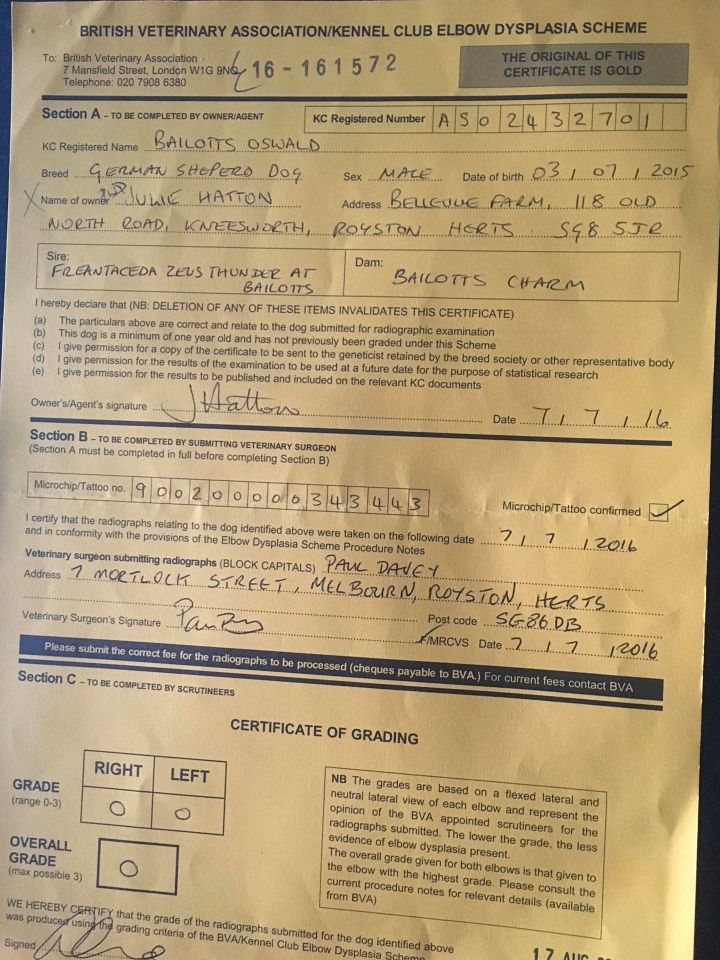 BRITISH VETERINARY ASSOCIATION/KENNEL CLUB ELBOW DYSPLASIA SCHEME
To: British Veterinary Association
7 Mansfield Street, London W1G 9NQ
Telephone: 020 7908 6380
16-161572
THE ORIGINAL OF THIS
CERTIFICATE IS GOLD
Section A – TO BE COMPLETED BY OWNER/AGENT
KC Registered Number AS02432701
KC Registered Name BAILOTTS OSWALD
Breed GERMAN SHEPERD DOG Sex MALE Date of birth 03/07/2015
Name of owner JULIE HATTON Address BELLEVUE FARM, 118 OLD
NORTH ROAD, KNEESWORTH, ROYSTON HERTS SG8 5JR
Sire: FREANTACEDA ZEUS THUNDER AT
BAILOTTS
Dam: BAILOTTS CHARM
I hereby declare that (NB: DELETION OF ANY OF THESE ITEMS INVALIDATES THIS CERTIFICATE)
(a) The particulars above are correct and relate to the dog submitted for radiographic examination
(b) This dog is a minimum of one year old and has not previously been graded under this Scheme
(c) I give permission for a copy of the certificate to be sent to the geneticist retained by the breed society or other representative body
(d) I give permission for the results of the examination to be used at a future date for the purpose of statistical research
(e) I give permission for the results to be published and included on the relevant KC documents
Owner's/Agent's signature J Hatton Date 7/7/16
Section B – TO BE COMPLETED BY SUBMITTING VETERINARY SURGEON
(Section A must be completed in full before completing Section B)
Microchip/Tattoo no. 900200000343443 Microchip/Tattoo confirmed ✓
I certify that the radiographs relating to the dog identified above were taken on the following date 7/7/2016
and in conformity with the provisions of the Elbow Dysplasia Scheme Procedure Notes
Veterinary surgeon submitting radiographs (BLOCK CAPITALS) PAUL DAVEY
Address 7 MORTLOCK STREET, MELBOURN, ROYSTON, HERTS
Post code SG86DB
Veterinary Surgeon's Signature
/MRCVS Date 7/7/2016
Please submit the correct fee for the radiographs to be processed (cheques payable to BVA.) For current fees contact BVA
Section C – TO BE COMPLETED BY SCRUTINEERS
CERTIFICATE OF GRADING
RIGHT LEFT
GRADE
(range 0-3) 0 0
OVERALL
GRADE
(max possible 3) 0
NB The grades are based on a flexed lateral and
neutral lateral view of each elbow and represent the
opinion of the BVA appointed scrutineers for the
radiographs submitted. The lower the grade, the less
evidence of elbow dysplasia present.
The overall grade given for both elbows is that given to
the elbow with the highest grade. Please consult the
current procedure notes for relevant details (available
from BVA)
WE HEREBY CERTIFY that the grade of the radiographs submitted for the dog identified above
was produced using the grading criteria of the BVA/Kennel Club Elbow Dysplasia Scheme
Signed
17 AUG